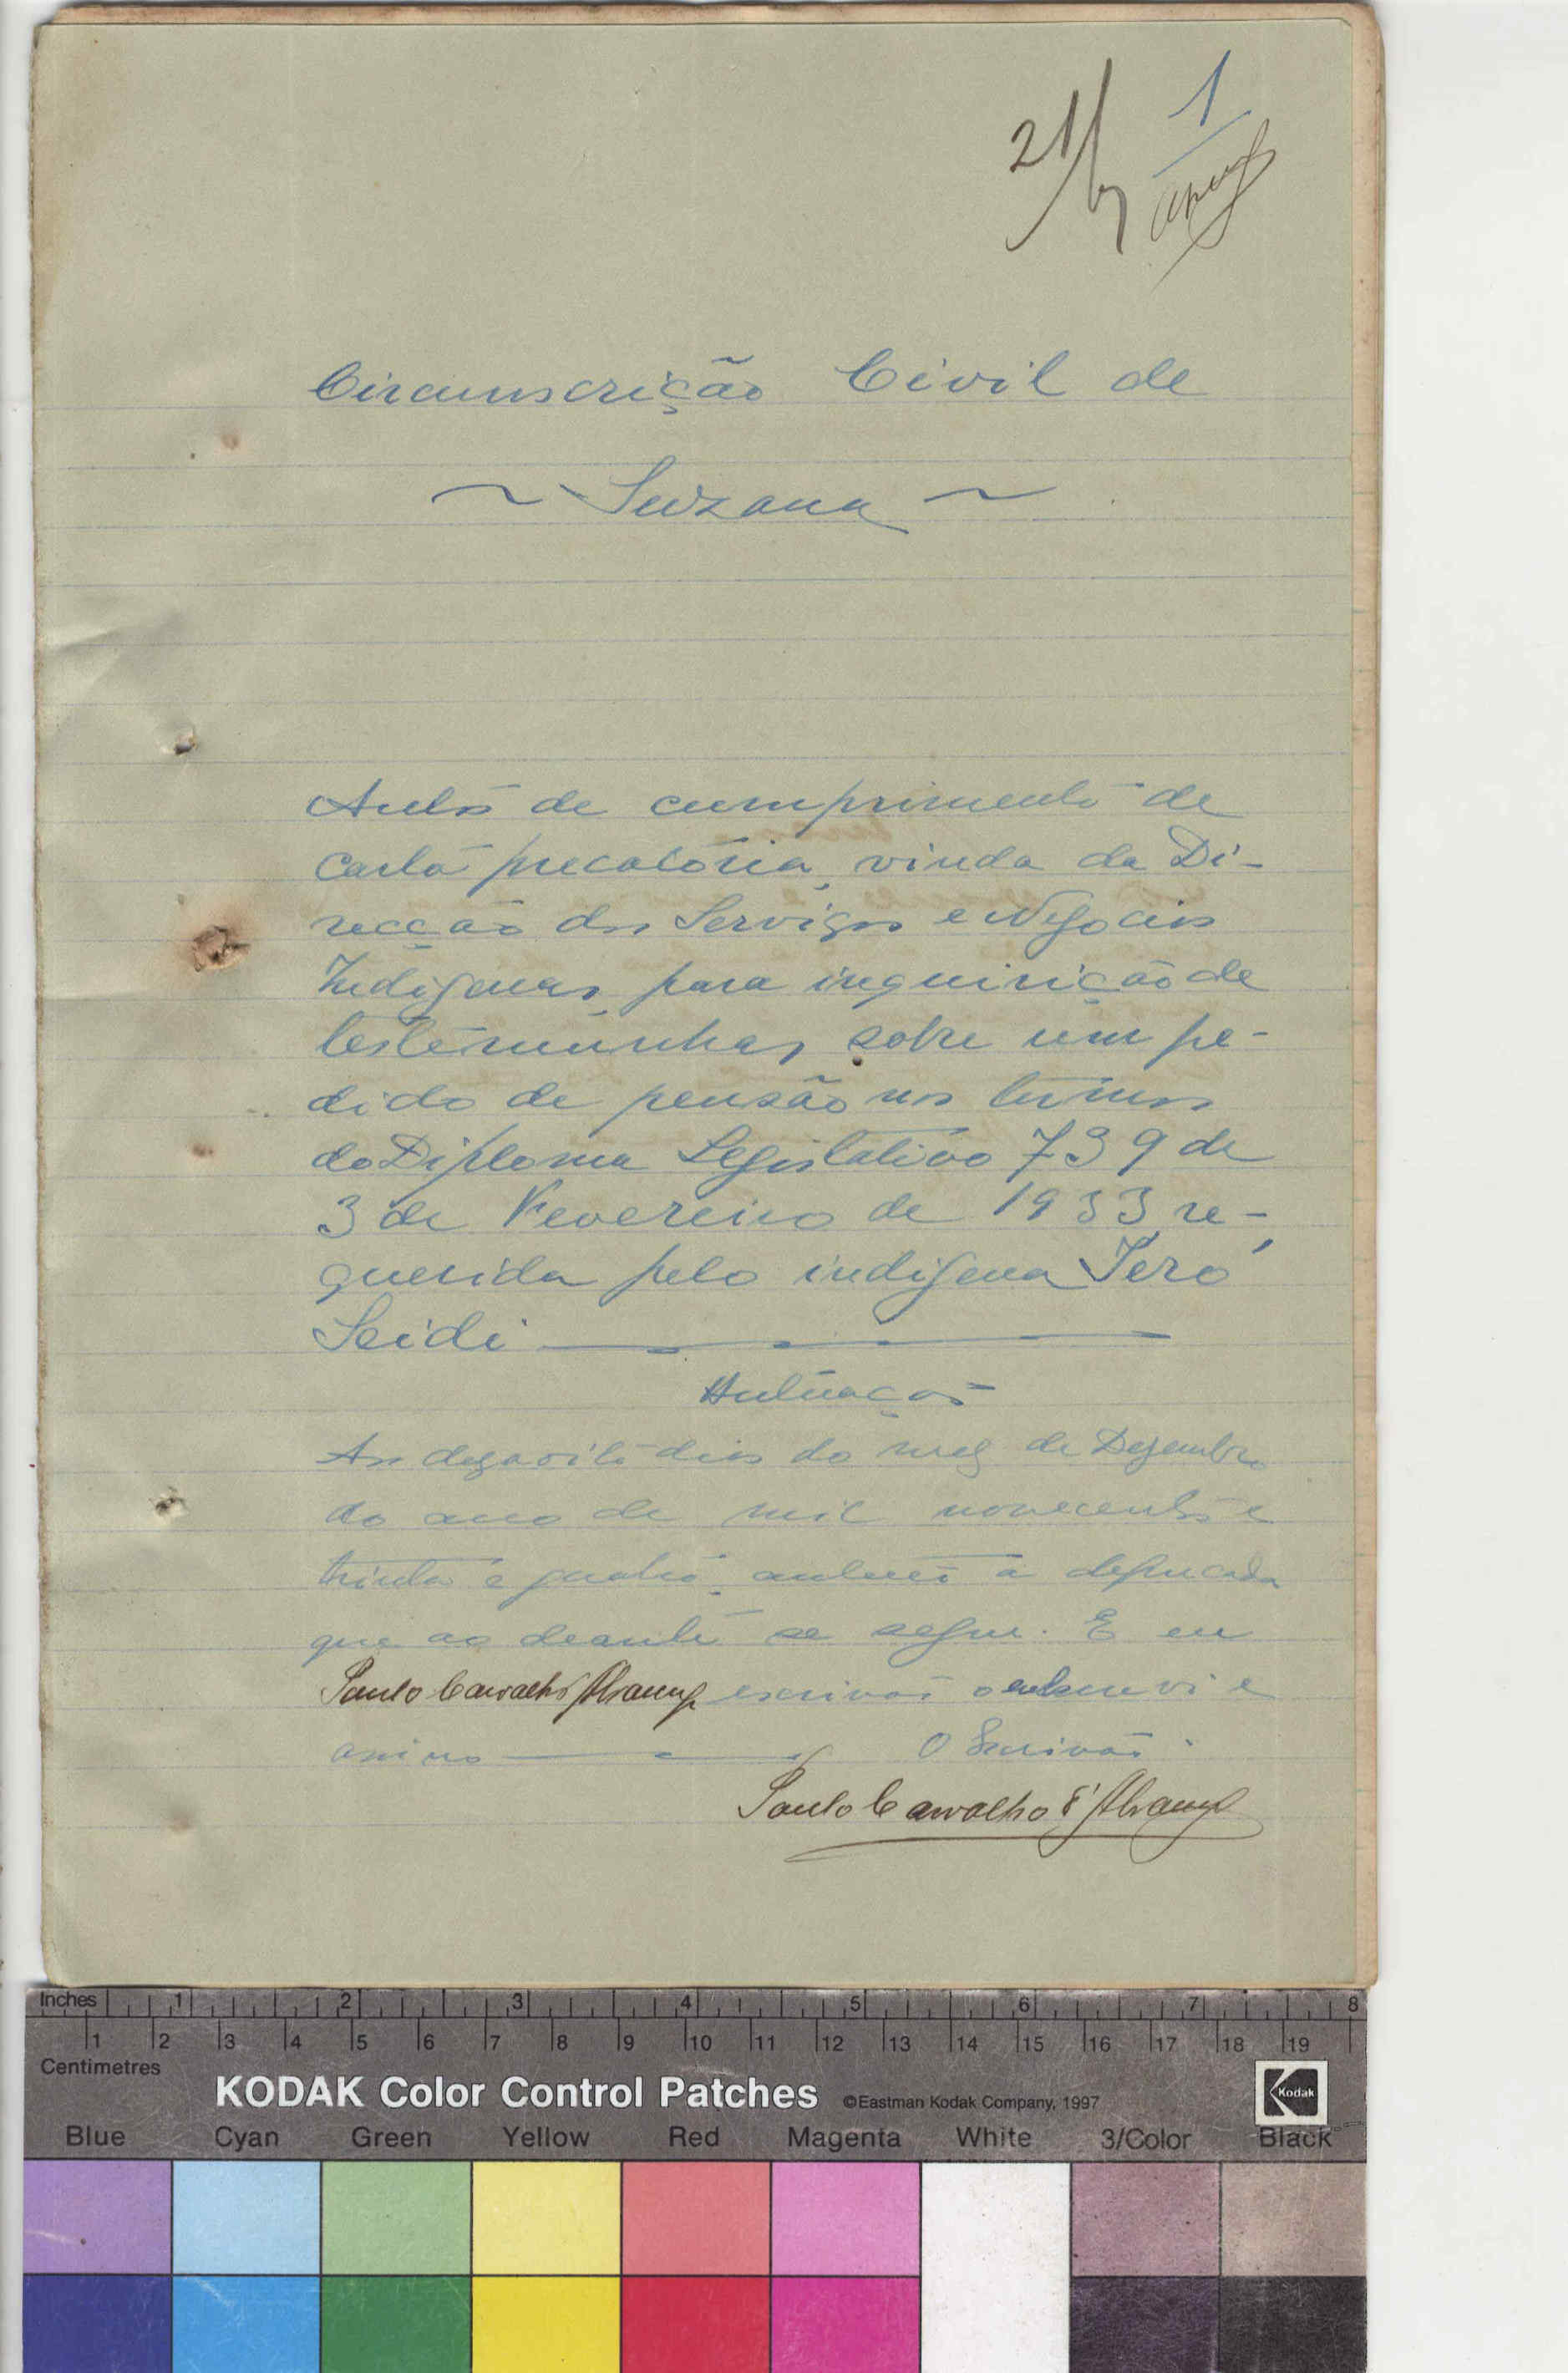 21/ 1
Circunscrição Civil de
~ Suzana ~
Autos de cumprimento de
carta precatória, vinda da Di-
recção dos Serviços e Negocios
Indigenas, para inquirição de
testemunhas, sobre um pe-
dido de pensão nos termos
do Diploma Legislativo 739 de
3 de Fevereiro de 1933, re-
querida pelo indigena Jeró
Seidi
Autuação
Aos dezaoito dias do mez de Dezembro
do ano de mil novecentos e
trinta e quatro, autuei a deprecada
que ao deante se segue. E eu
Paulo Carvalho escrivão o subscrevi e
assino O Escrivão
Paulo Carvalho
Inches 1 2 3 4 5 6 7 8
1 2 3 4 5 6 7 8 9 10 11 12 13 14 15 16 17 18 19
Centimetres
KODAK Color Control Patches ©Eastman Kodak Company, 1997 Kodak
Blue Cyan Green Yellow Red Magenta White 3/Color Black